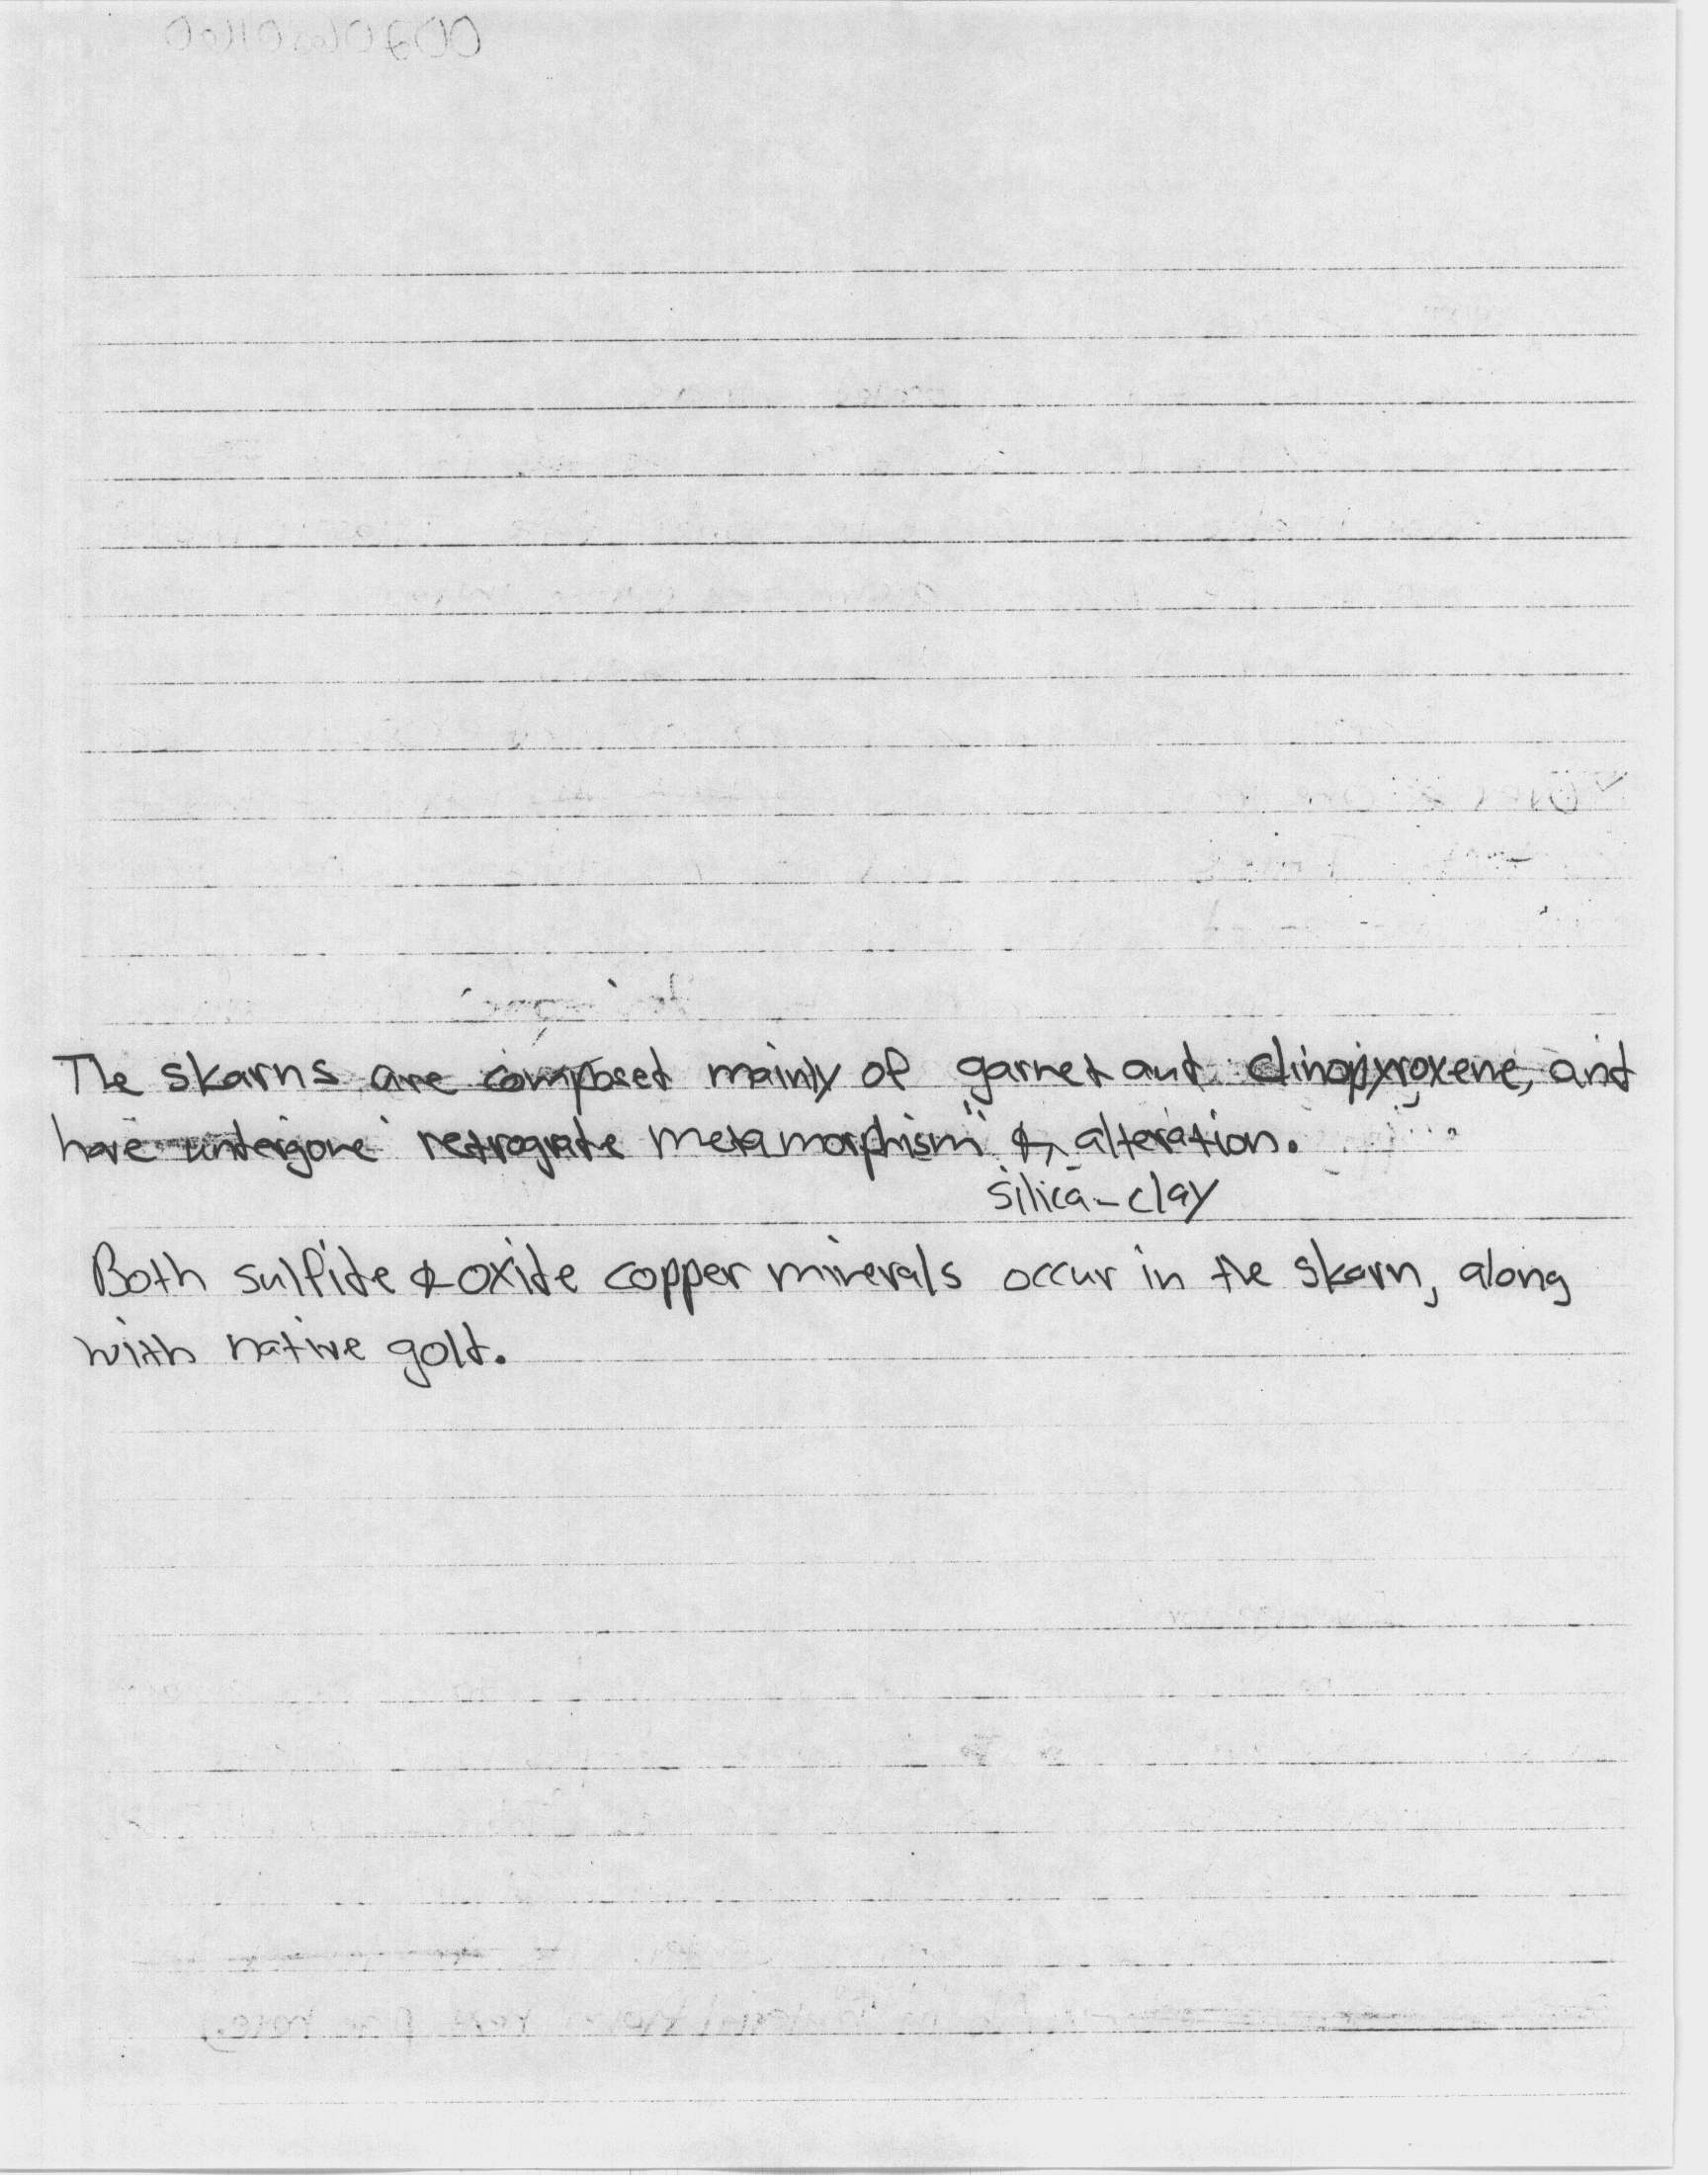 The skarns are composed mainly of garnet and clinopyroxene, and
have undergone retrograde metamorphism & alteration.
silica-clay
Both sulfide & oxide copper minerals occur in the skarn, along
with native gold.